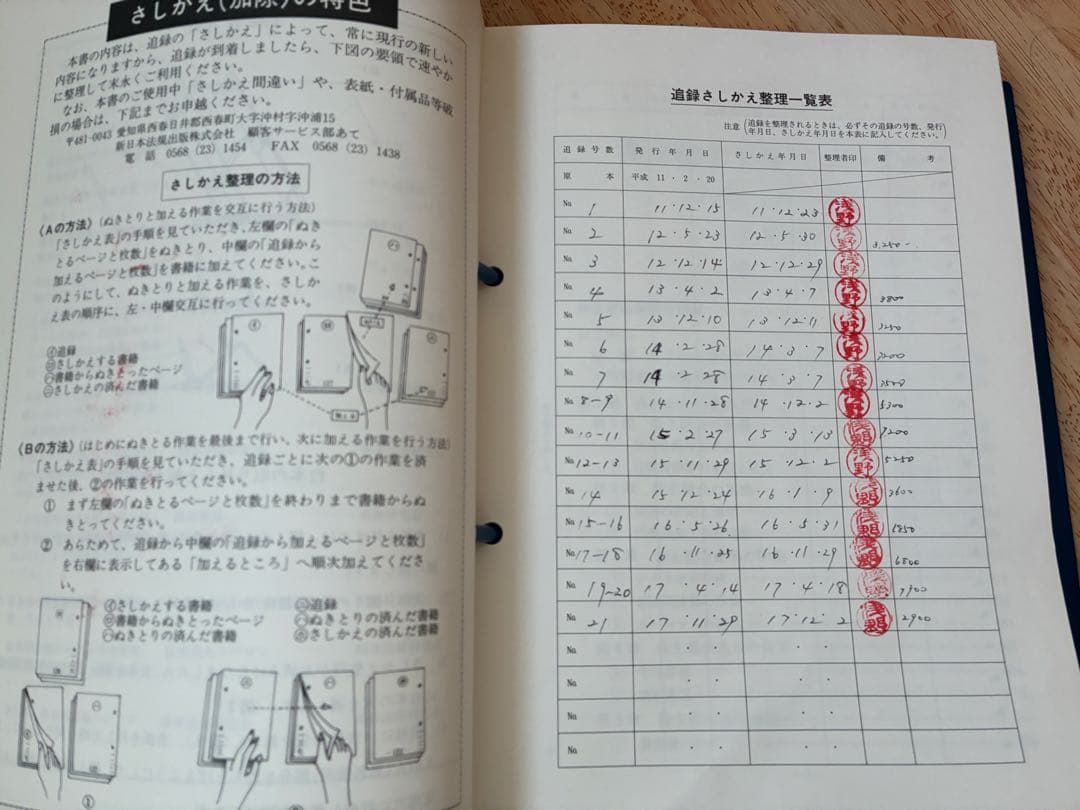 さしかえ(加除)の特色
本書の内容は、追録の「さしかえ」によって、常に現行の新しい
内容になりますから、追録が到着しましたら、下図の要領で速やか
に整理して末永くご利用ください。
なお、本書のご使用中「さしかえ間違い」や、表紙・付属品等破
損の場合は、下記までお申越ください。
〒481-0043 愛知県西春日井郡西春町大字沖村字沖浦15
新日本法規出版株式会社 顧客サービス部あて
電話 0568(23)1454 FAX 0568(23)1438
さしかえ整理の方法
〈Aの方法〉(ぬきとりと加える作業を交互に行う方法)
「さしかえ表」の手順を見ていただき、左欄の「ぬき
とるページと枚数」をぬきとり、中欄の「追録から
加えるページと枚数」を書籍に加えてください。こ
のようにして、ぬきとりと加える作業を、さしか
え表の順序に、左・中欄交互に行ってください。
㋑追録
㋺さしかえする書籍
㋩書籍からぬきとったページ
㋥さしかえの済んだ書籍
〈Bの方法〉(はじめにぬきとる作業を最後まで行い、次に加える作業を行う方法)
「さしかえ表」の手順を見ていただき、追録ごとに次の①の作業を済
ませた後、②の作業を行ってください。
① まず左欄の「ぬきとるページと枚数」を終わりまで書籍からぬ
きとってください。
② あらためて、追録から中欄の「追録から加えるページと枚数」
を右欄に表示してある「加えるところ」へ順次加えてくださ
い。
㋑さしかえする書籍
㋺書籍からぬきとったページ
㋩ぬきとりの済んだ書籍
㋥追録
㋭ぬきとりの済んだ書籍
㋬さしかえの済んだ書籍
①
追録さしかえ整理一覧表
注意(追録を整理されるときは、必ずその追録の号数、発行
年月日、さしかえ年月日を本表に記入してください。)
追録号数 発行年月日 さしかえ年月日 整理者印 備考
原本 平成 11・2・20
No. 1 11・12・15 11・12・23 浅野
No. 2 12・5・23 12・5・30 浅野 3,250-
No. 3 12・12・14 12・12・29 浅野
No. 4 13・4・2 13・4・7 浅野 3800
No. 5 13・12・10 13・12・11 浅野 3250
No. 6 14・2・28 14・3・7 浅野 3200
No. 7 14・2・28 14・3・7 浅野 3500
No. 8-9 14・11・28 14・12・2 浅野 5300
No. 10-11 15・2・27 15・3・13 浅野 7200
No. 12-13 15・11・29 15・12・2 浅野 5250
No. 14 15・12・24 16・1・9 浅野 3600
No. 15-16 16・5・26 16・5・31 浅野 6850
No. 17-18 16・11・25 16・11・29 浅野 6800
No. 19-20 17・4・14 17・4・18 浅野 7300
No. 21 17・11・29 17・12・2 浅野 2900
No. ・ ・ ・ ・
No. ・ ・ ・ ・
No. ・ ・ ・ ・
No. ・ ・ ・ ・